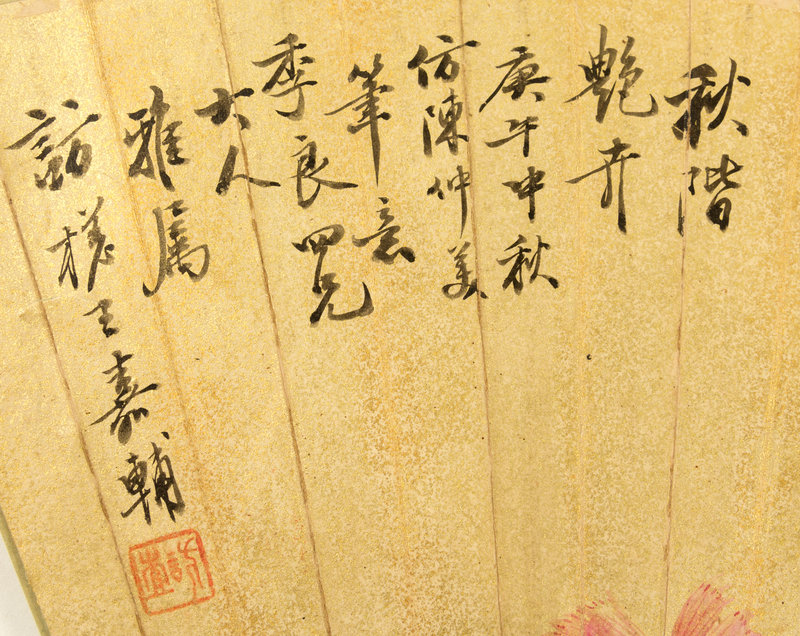 秋階
艷卉
庚午中秋
仿陳仲美
筆意
季良四兄
大人
雅屬
訪槎王嘉輔
訪